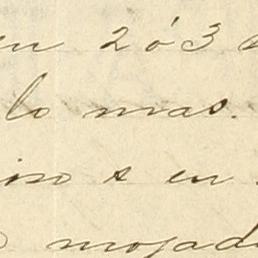 en 2 ó 3
lo mas.
s en
mojad